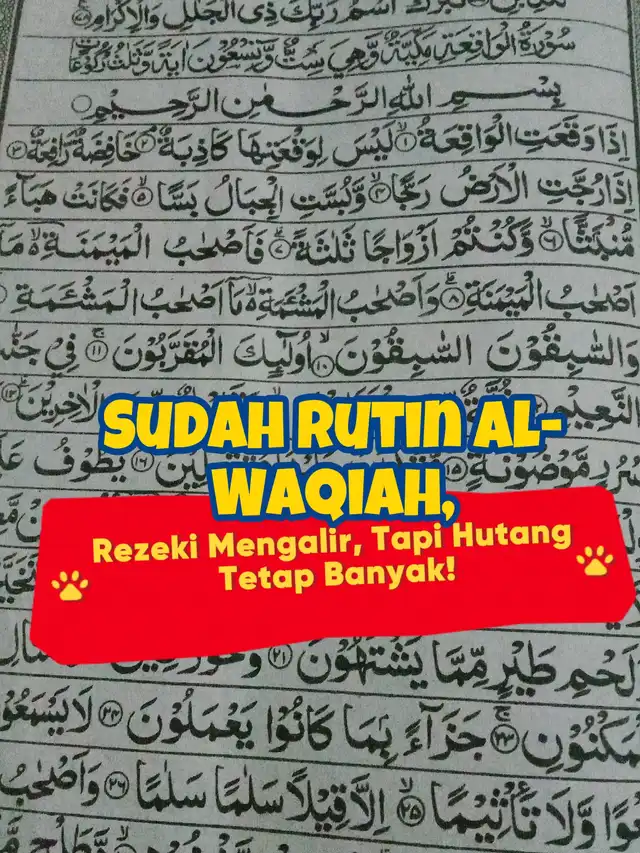 تَبٰرَكَ اسْمُ رَبِّكَ ذِى الْجَلٰلِ وَالْاِكْرَامِ
سُوْرَةُ الْوَاقِعَةِ مَكِّيَّةٌ وَّهِيَ سِتٌّ وَّتِسْعُوْنَ اٰيَةً وَّثَلٰثُ رُكُوْعَاتٍ
بِسْمِ اللّٰهِ الرَّحْمٰنِ الرَّحِيْمِ
اِذَا وَقَعَتِ الْوَاقِعَةُ ۙ﴿۱﴾ لَيْسَ لِوَقْعَتِهَا كَاذِبَةٌ ۘ﴿۲﴾ خَافِضَةٌ رَّافِعَةٌ ۙ﴿۳﴾
اِذَا رُجَّتِ الْاَرْضُ رَجًّا ۙ﴿۴﴾ وَّبُسَّتِ الْجِبَالُ بَسًّا ۙ﴿۵﴾ فَكَانَتْ هَبَآءً
مُّنْۢبَثًّا ۙ﴿۶﴾ وَّكُنْتُمْ اَزْوَاجًا ثَلٰثَةً ؕ﴿۷﴾ فَاَصْحٰبُ الْمَيْمَنَةِ ۙ مَاۤ
اَصْحٰبُ الْمَيْمَنَةِ ؕ﴿۸﴾ وَاَصْحٰبُ الْمَشْـَٔمَةِ ۙ مَاۤ اَصْحٰبُ الْمَشْـَٔمَةِ
وَالسّٰبِقُوْنَ السّٰبِقُوْنَ ۙ﴿۱۰﴾ اُولٰٓئِكَ الْمُقَرَّبُوْنَ ۚ﴿۱۱﴾ فِيْ جَنّٰتِ
النَّعِيْمِ ثُلَّةٌ الْاٰخِرِيْنَ ؕ﴿۱۴﴾
SUDAH RUTIN AL-
سُرُرٍ مَّوْضُوْنَةٍ ۙ﴿۱۵﴾ ﴿۱۶﴾ يَطُوْفُ
WAQIAH,
Rezeki Mengalir, Tapi Hutang
Tetap Banyak!
لَحْمِ طَيْرٍ مِّمَّا يَشْتَهُوْنَ ؕ﴿۲۱﴾ وَحُوْرٌ
الْمَكْنُوْنِ ۚ﴿۲۳﴾ جَزَآءًۢ بِمَا كَانُوْا يَعْمَلُوْنَ ﴿۲۴﴾ لَا يَسْمَعُوْنَ
وَّلَا تَاْثِيْمًا ۙ﴿۲۵﴾ اِلَّا قِيْلًا سَلٰمًا سَلٰمًا ﴿۲۶﴾ وَاَصْحٰبُ